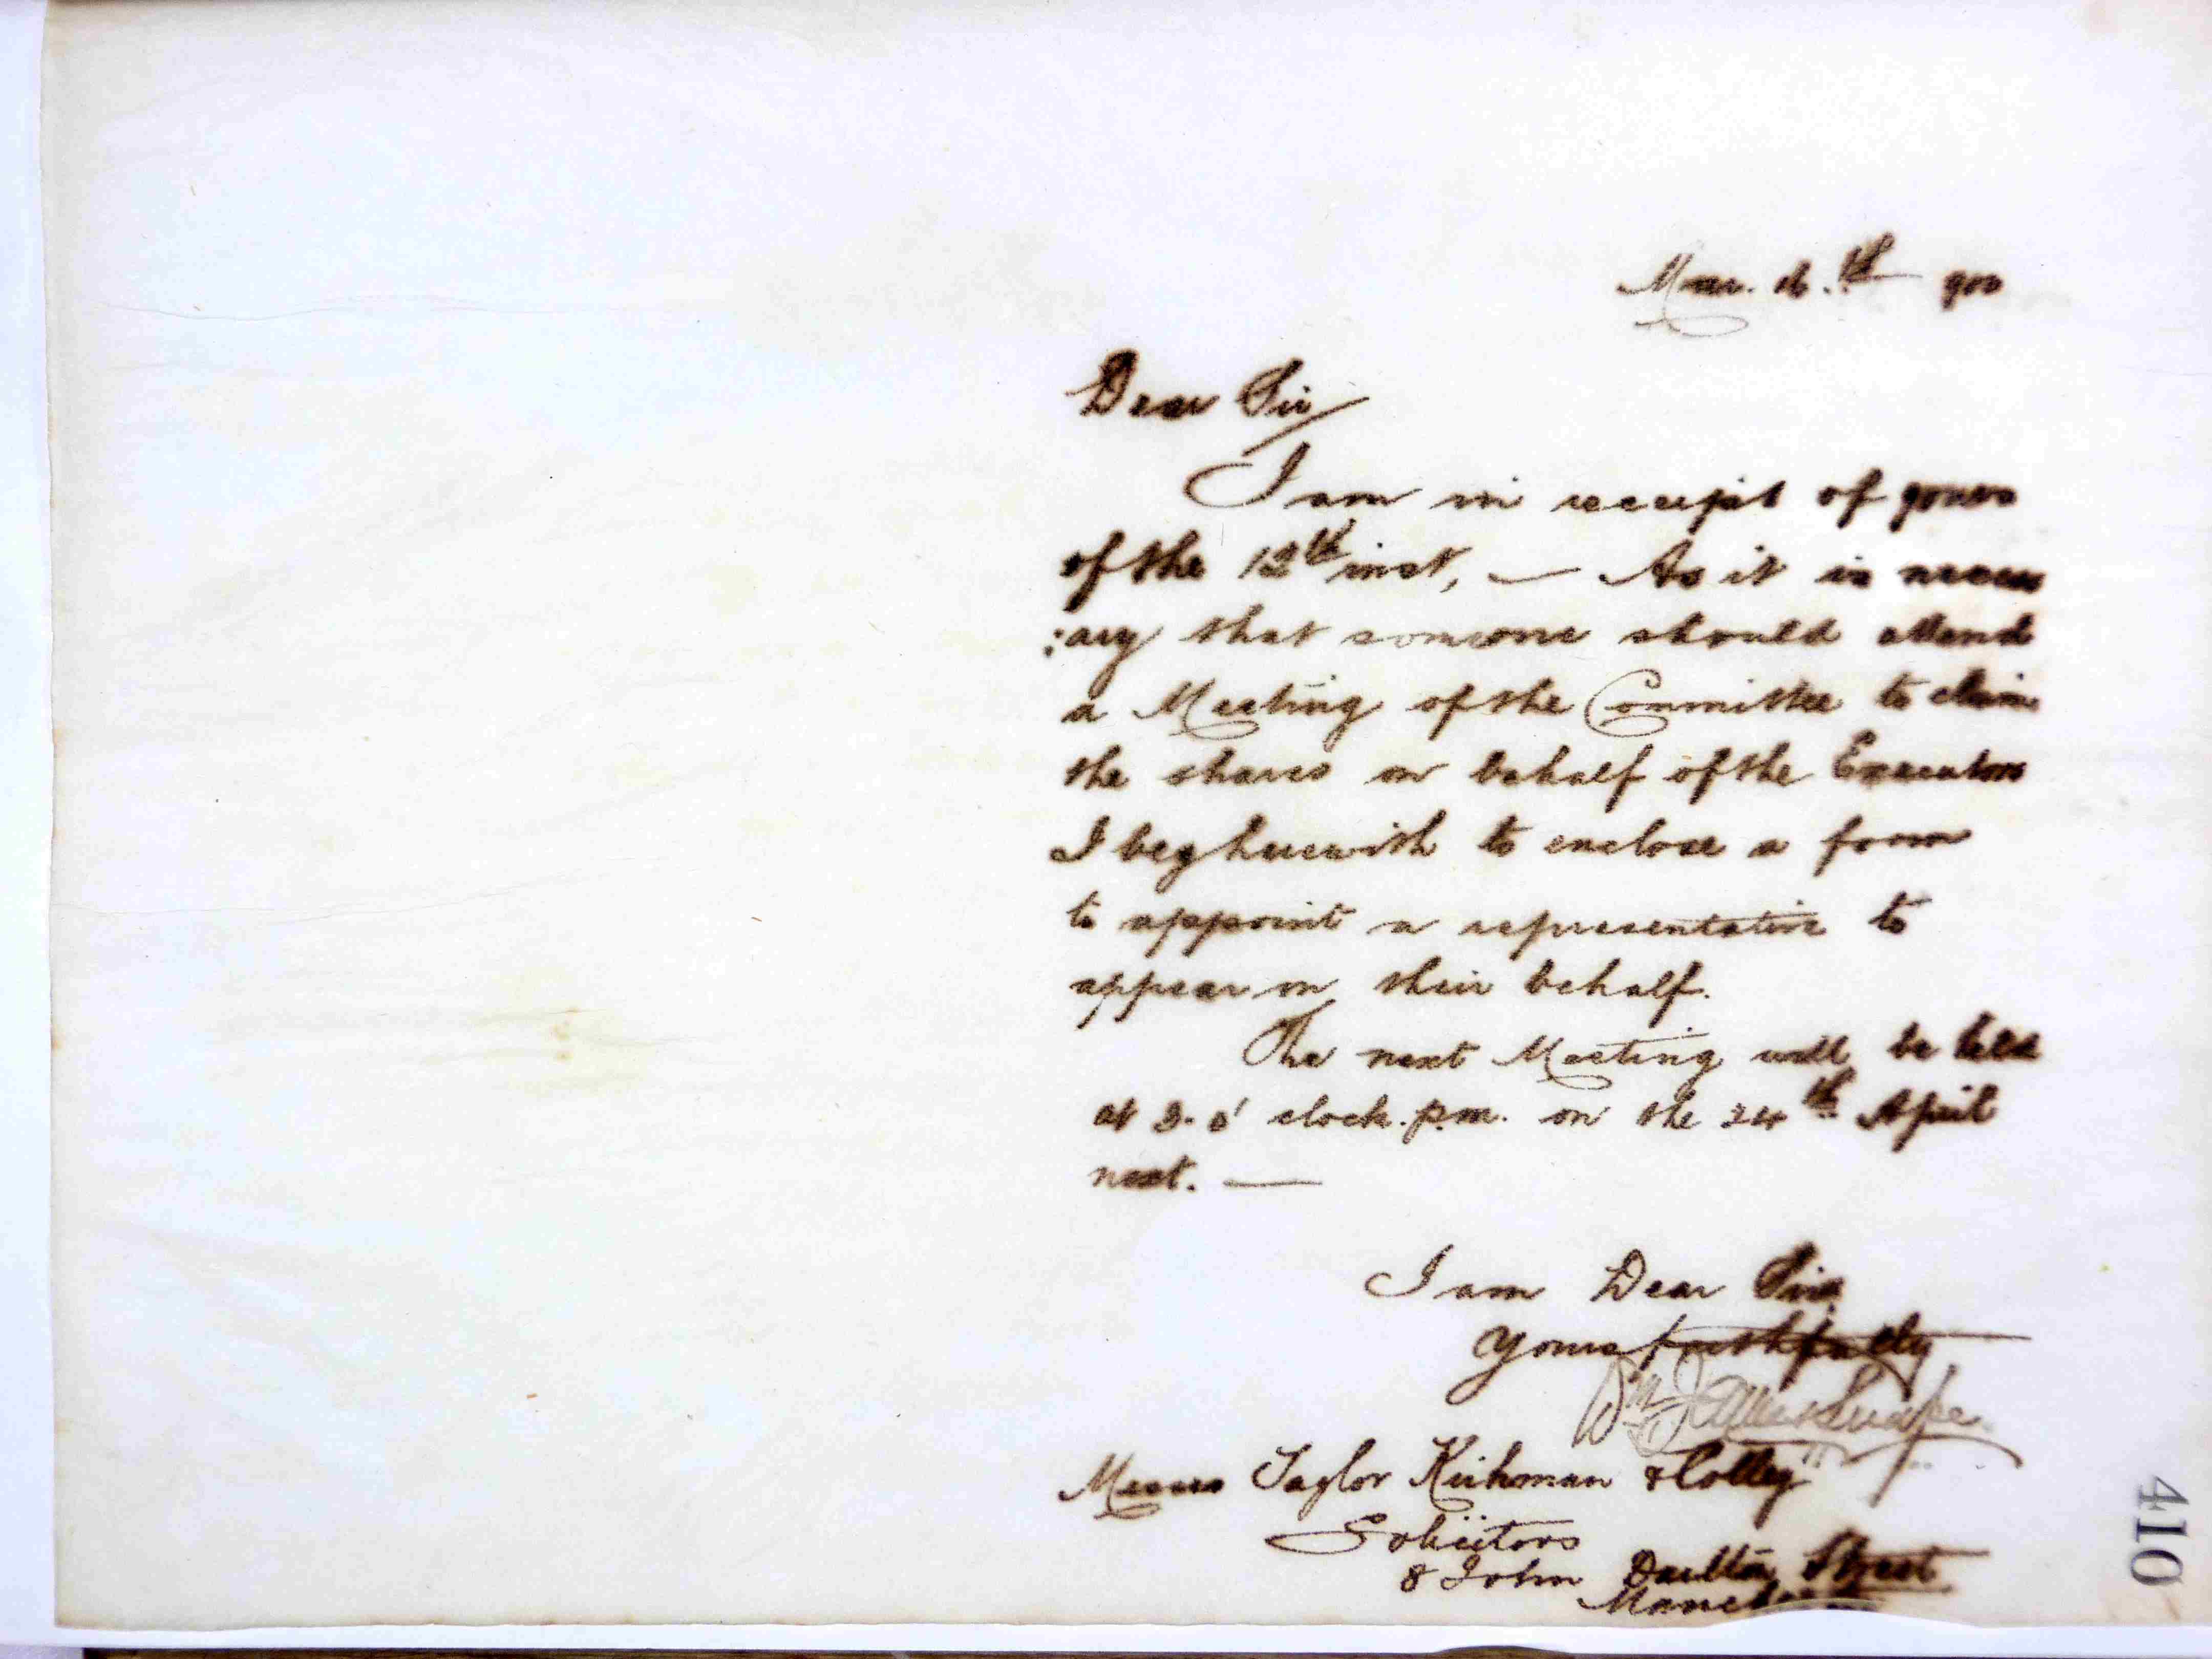 Mar. 16.th 900
Dear Sir
I am in receipt of yours
of the 12th inst, — As it is necess
:ary that someone should attend
a Meeting of the Committee to claim
the shares on behalf of the Executors
I beg herewith to enclose a form
to appoint a representative to
appear on their behalf.
The next Meeting will be held
at 3. o' clock. p.m. on the 24th April
next. —
I am Dear Sirs
Yours faithfully
Wm James
Messrs Taylor Kirkman & Colley
Solicitors
8 John Daulton Street
410